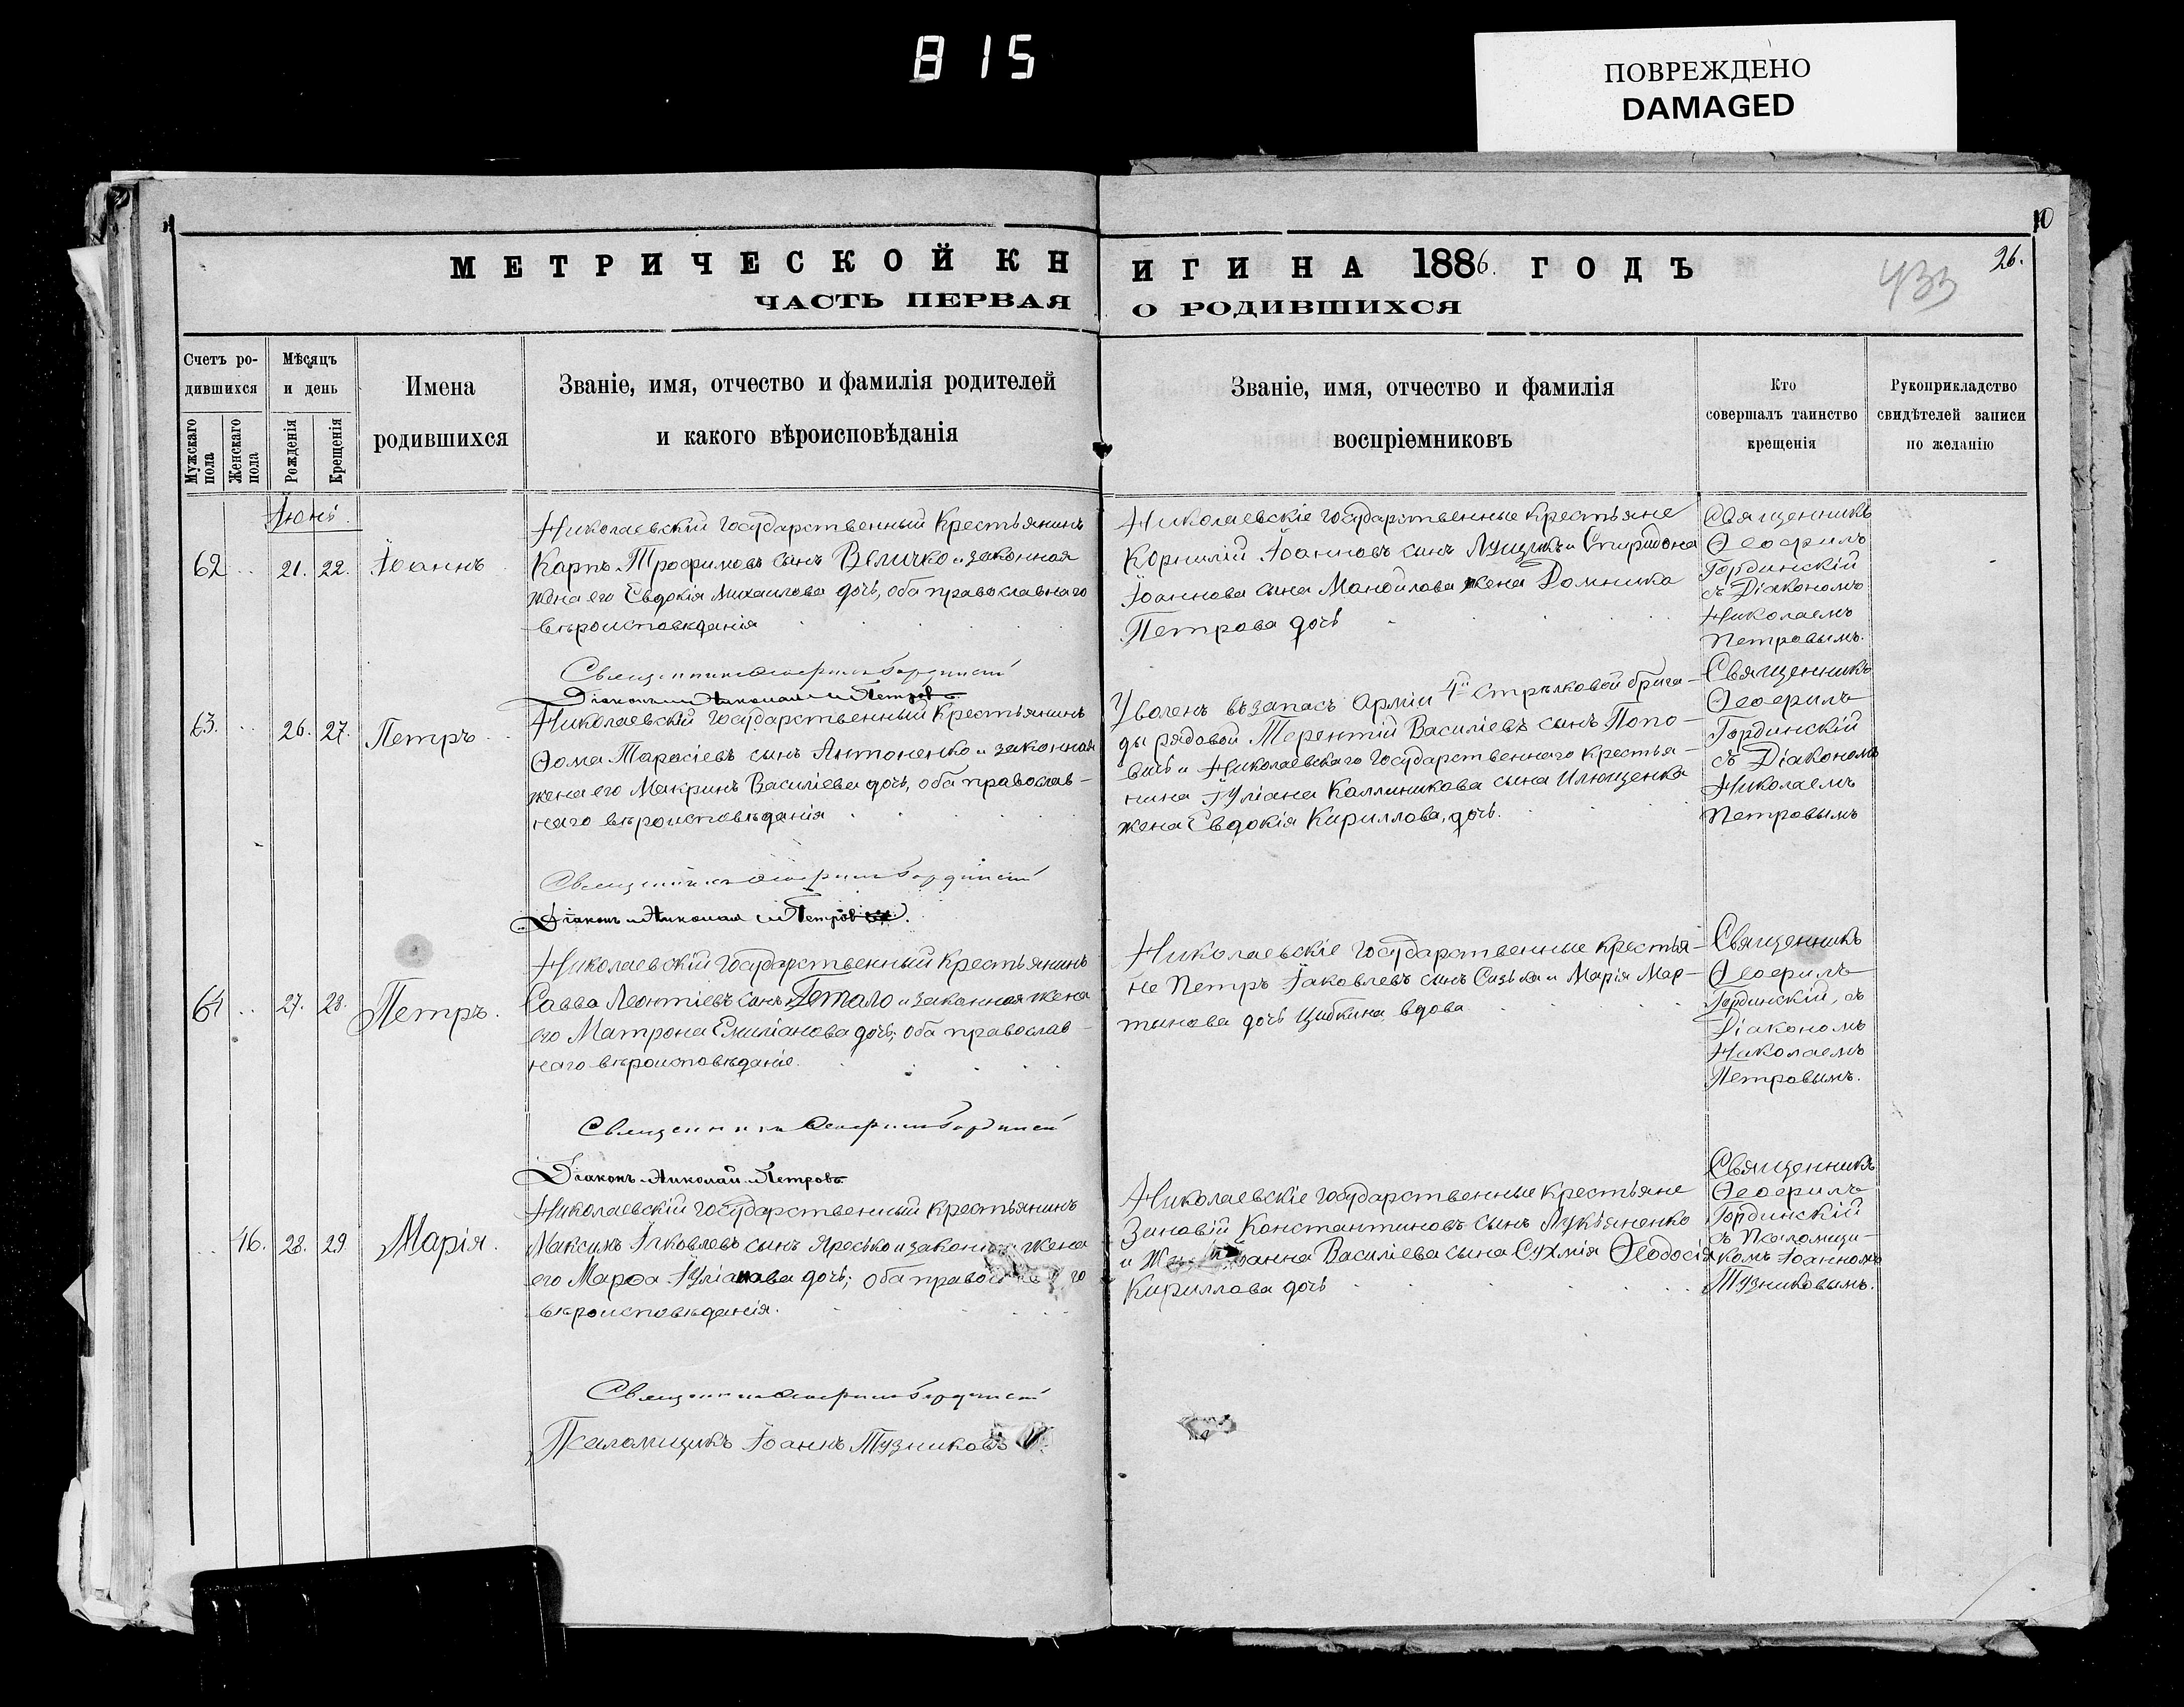 815
ПОВРЕЖДЕНО
DAMAGED
10
МЕТРИЧЕСКОЙ КН
ИГИ НА 1886. ГОДЪ
26.
433
ЧАСТЬ ПЕРВАЯ
О РОДИВШИХСЯ
Счетъ ро-
дившихся
Мужскаго пола
Женскаго пола
Мѣсяцъ
и день
Рожденія
Крещенія
Имена
родившихся
Званіе, имя, отчество и фамилія родителей
и какого вѣроисповѣданія
Званіе, имя, отчество и фамилія
воспріемниковъ
Кто
совершалъ таинство
крещенія
Рукоприкладство
свидѣтелей записи
по желанію
Іюнь.
62 .. 21. 22. Іоаннъ
Николаевскій Государственный Крестьянинъ
Карпъ Трофимовъ сынъ Величко и законная
жена его Евдокія Михаилова дочь, оба православнаго
вѣроисповѣданія
Николаевскіе Государственные Крестьяне
Корнилій Іоанновъ сынъ Луцикъ и Спиридона
Іоаннова сына Мандилова жена Домника
Петрова дочь
Священникъ
Ѳеофилъ
Гординскій
съ Діакономъ
Николаемъ
Петровымъ.
Священникъ Ѳеофилъ Гординскій
Діаконъ Николай Петровъ
63. .. 26. 27. Петръ
Николаевскій Государственный Крестьянинъ
Ѳома Тарасіевъ сынъ Антоненко и законная
жена его Макрина Василіева дочь, оба православ-
наго вѣроисповѣданія
Уволенъ въ запасъ Арміи 4й стрѣлковой брига-
ды рядовой Терентій Василіевъ сынъ Попо-
вичъ и Николаевскаго Государственнаго Крестья-
нина Іуліана Каллиникова сына Илющенка
жена Евдокія Кириллова, дочь.
Священникъ
Ѳеофилъ
Гординскій
съ Діакономъ
Николаемъ
Петровымъ
Священникъ Ѳеофилъ Гординскій
Діаконъ Николай Петровъ.
64 .. 27. 28. Петръ.
Николаевскій Государственный Крестьянинъ
Савва Леонтіевъ сынъ Гетало и законная жена
его Матрона Емиліанова дочь, оба православ-
наго вѣроисповѣданіе.
Николаевскіе Государственные Крестья-
не Петръ Іаковлевъ сынъ Сизька и Марія Мар-
тинова дочь Цибкина вдова
Священникъ
Ѳеофилъ
Гординскій, съ
Діакономъ
Николаемъ
Петровымъ.
Священникъ Ѳеофилъ Гординскій
Діаконъ Николай Петровъ
.. 46. 28. 29 Марія.
Николаевскій Государственный Крестьянинъ
Максимъ Іаковлевъ сынъ Яресько и законная жена
его Марѳа Іуліанова дочь; оба православнаго
вѣроисповѣданія.
Николаевскіе Государственные Крестьяне
Зиновій Константиновъ сынъ Лукьяненко
и Василіева сына Сухмія Ѳеодосія
Кириллова дочь
Священникъ
Ѳеофилъ
Гординскій
съ Псаломщи-
комъ Іоанномъ
Тузниковымъ.
Священникъ Ѳеофилъ Гординскій
Псаломщикъ Іоаннъ Тузниковъ